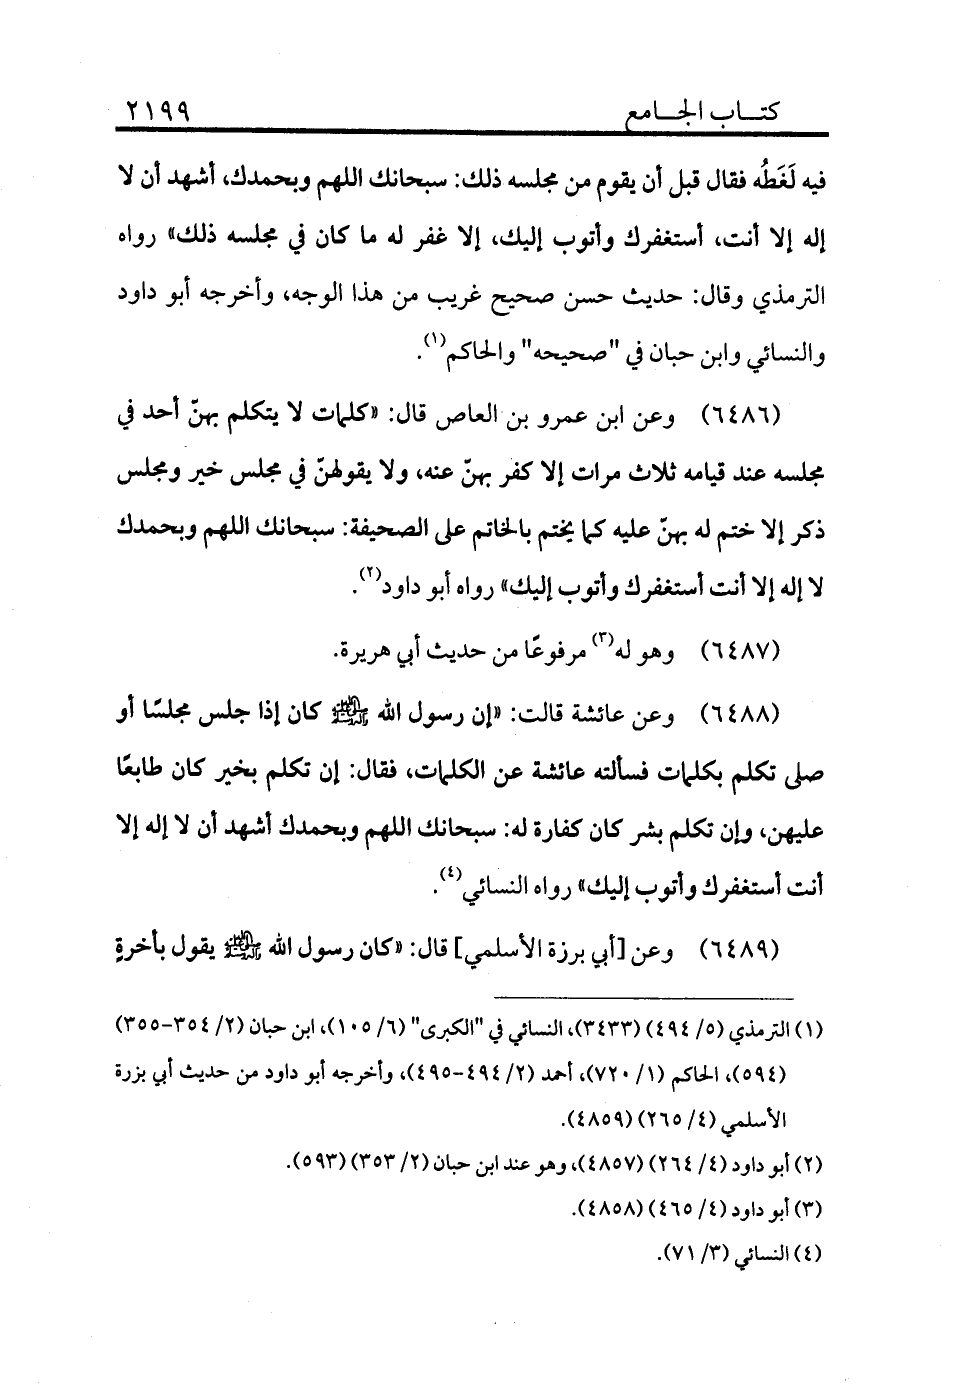 كتـاب الجـامع ٢١٩٩
فيه لَغَطُه فقال قبل أن يقوم من مجلسه ذلك: سبحانك اللهم وبحمدك، أشهد أن لا
إله إلا أنت، أستغفرك وأتوب إليك، إلا غفر له ما كان في مجلسه ذلك» رواه
الترمذي وقال: حديث حسن صحيح غريب من هذا الوجه، وأخرجه أبو داود
والنسائي وابن حبان في "صحيحه" والحاكم(١).
(٦٤٨٦) وعن ابن عمرو بن العاص قال: «كلمات لا يتكلم بهنّ أحد في
مجلسه عند قيامه ثلاث مرات إلا كفر بهنّ عنه، ولا يقولهنّ في مجلس خير ومجلس
ذكر إلا ختم له بهنّ عليه كما يختم بالخاتم على الصحيفة: سبحانك اللهم وبحمدك
لا إله إلا أنت أستغفرك وأتوب إليك» رواه أبو داود(٢).
(٦٤٨٧) وهو له(٣) مرفوعًا من حديث أبي هريرة.
(٦٤٨٨) وعن عائشة قالت: «إن رسول الله ﷺ كان إذا جلس مجلسًا أو
صلى تكلم بكلمات فسألته عائشة عن الكلمات، فقال: إن تكلم بخير كان طابعًا
عليهن، وإن تكلم بشر كان كفارة له: سبحانك اللهم وبحمدك أشهد أن لا إله إلا
أنت أستغفرك وأتوب إليك» رواه النسائي(٤).
(٦٤٨٩) وعن [أبي برزة الأسلمي] قال: «كان رسول الله ﷺ يقول بأخرةٍ
(١) الترمذي (٥/ ٤٩٤) (٣٤٣٣)، النسائي في "الكبرى" (٦/ ١٠٥)، ابن حبان (٢/ ٣٥٤-٣٥٥)
(٥٩٤)، الحاكم (١/ ٧٢٠)، أحمد (٢/ ٤٩٤-٤٩٥)، وأخرجه أبو داود من حديث أبي بزرة
الأسلمي (٤/ ٢٦٥) (٤٨٥٩).
(٢) أبو داود (٤/ ٢٦٤) (٤٨٥٧)، وهو عند ابن حبان (٢/ ٣٥٣) (٥٩٣).
(٣) أبو داود (٤/ ٤٦٥) (٤٨٥٨).
(٤) النسائي (٣/ ٧١).